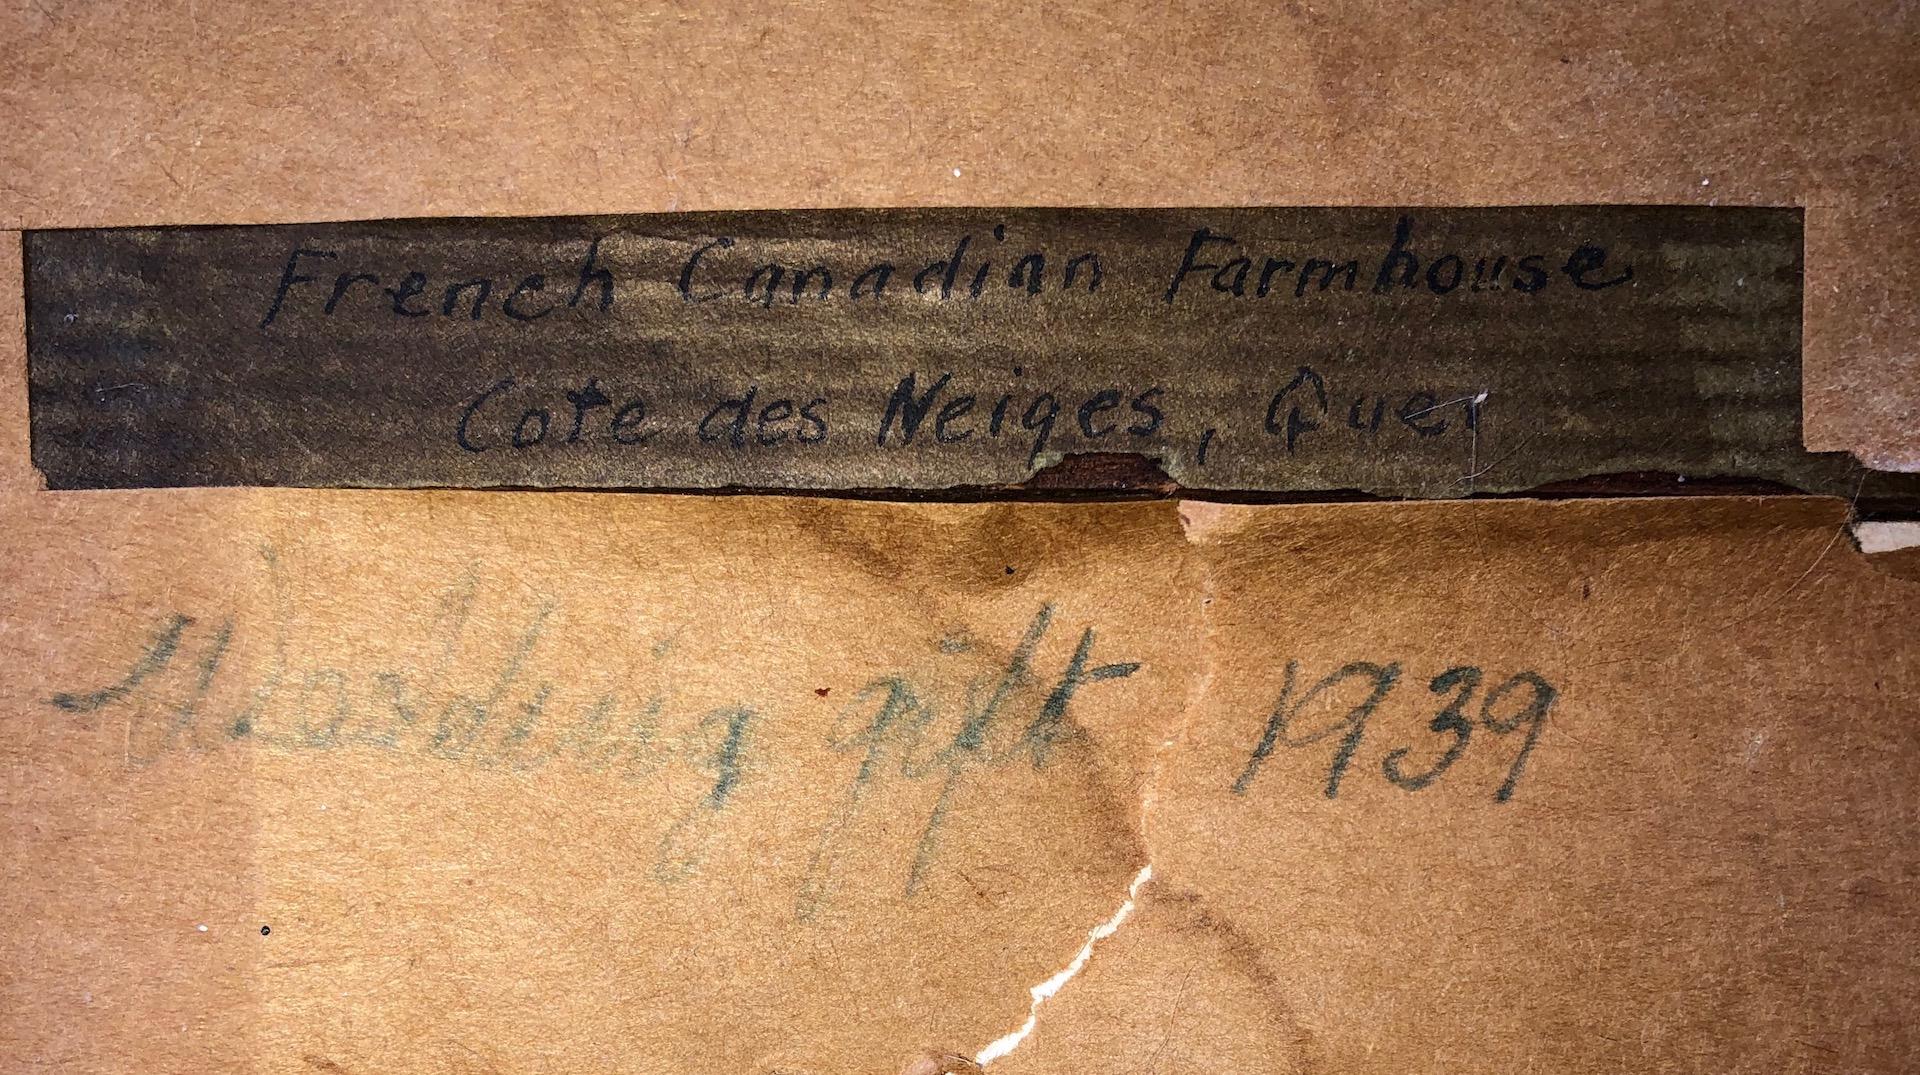 French Canadian Farmhouse
Cote des Neiges, Que.
Wedding gift 1939